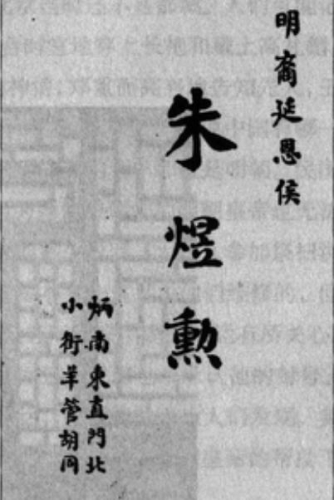 明裔延恩侯
朱煜勳
炳南東直門北
小街羊管胡同